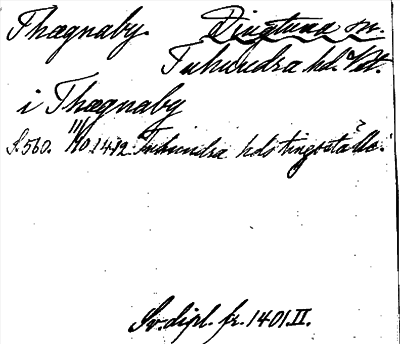 Thægnaby. Dingtuna sn.
Tuhundra hd. Vstm.
i Thægnaby
S. 560. 11/10 1412. Tuhundra hds tingsställe?
Sv. dipl. fr. 1401. II.